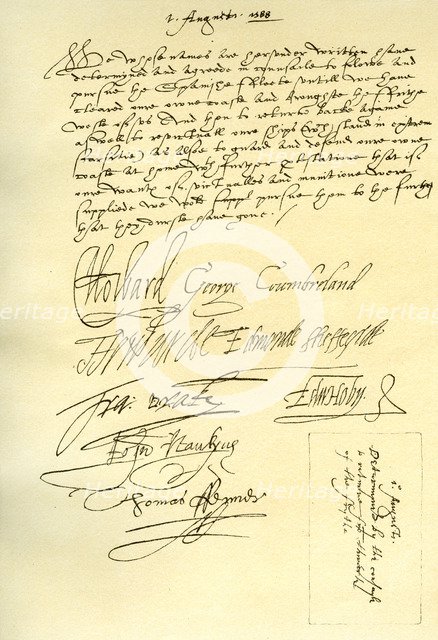 1. Augusti. 1588
We whose names are hereunder written have
determined and agreede in counsaile to folowe and
pursue the Spanishe Fleete untill we have
cleared oure owne coaste and broughte the Frithe
weste of us. And then to returne backe againe
aswell to revictuall oure ships (which stand in extrem
scarsitie) as alsoe to guard and defend oure owne
coaste at home with further protestatione that if
oure wantes of victualles and munitione were
suppliede we wold pursue them to the furthest
that they durste have gone.
C Howard George Cumbreland
T Howarde Edmonde Sheffeylde
Fra: Drake Edw Hoby
John Hawkyns
Thomas Fenner
1. Augusti.
Determined by the counsale
to retorne
of the Frithe
Heritage